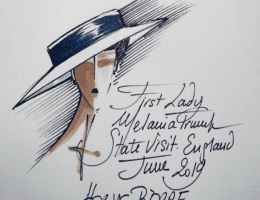 First Lady
Melania Trump
State Visit England
June 2019